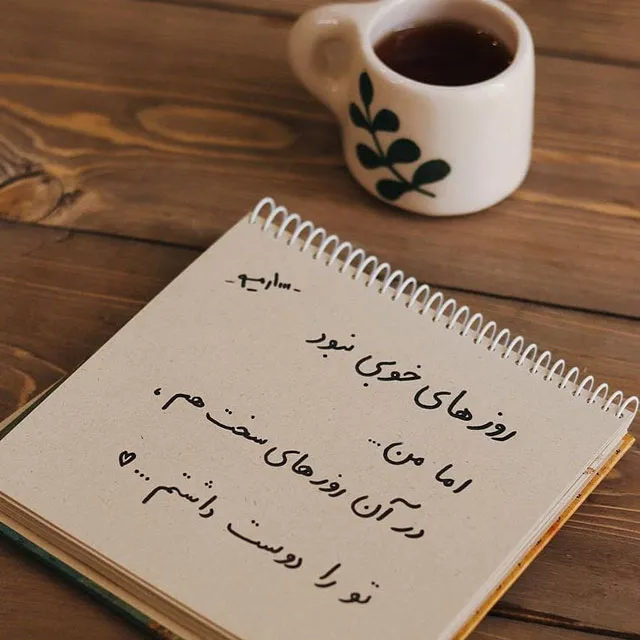 روزهای خوبی نبود
اما من...
در آن روزهای سخت هم،
تو را دوست داشتم...♡